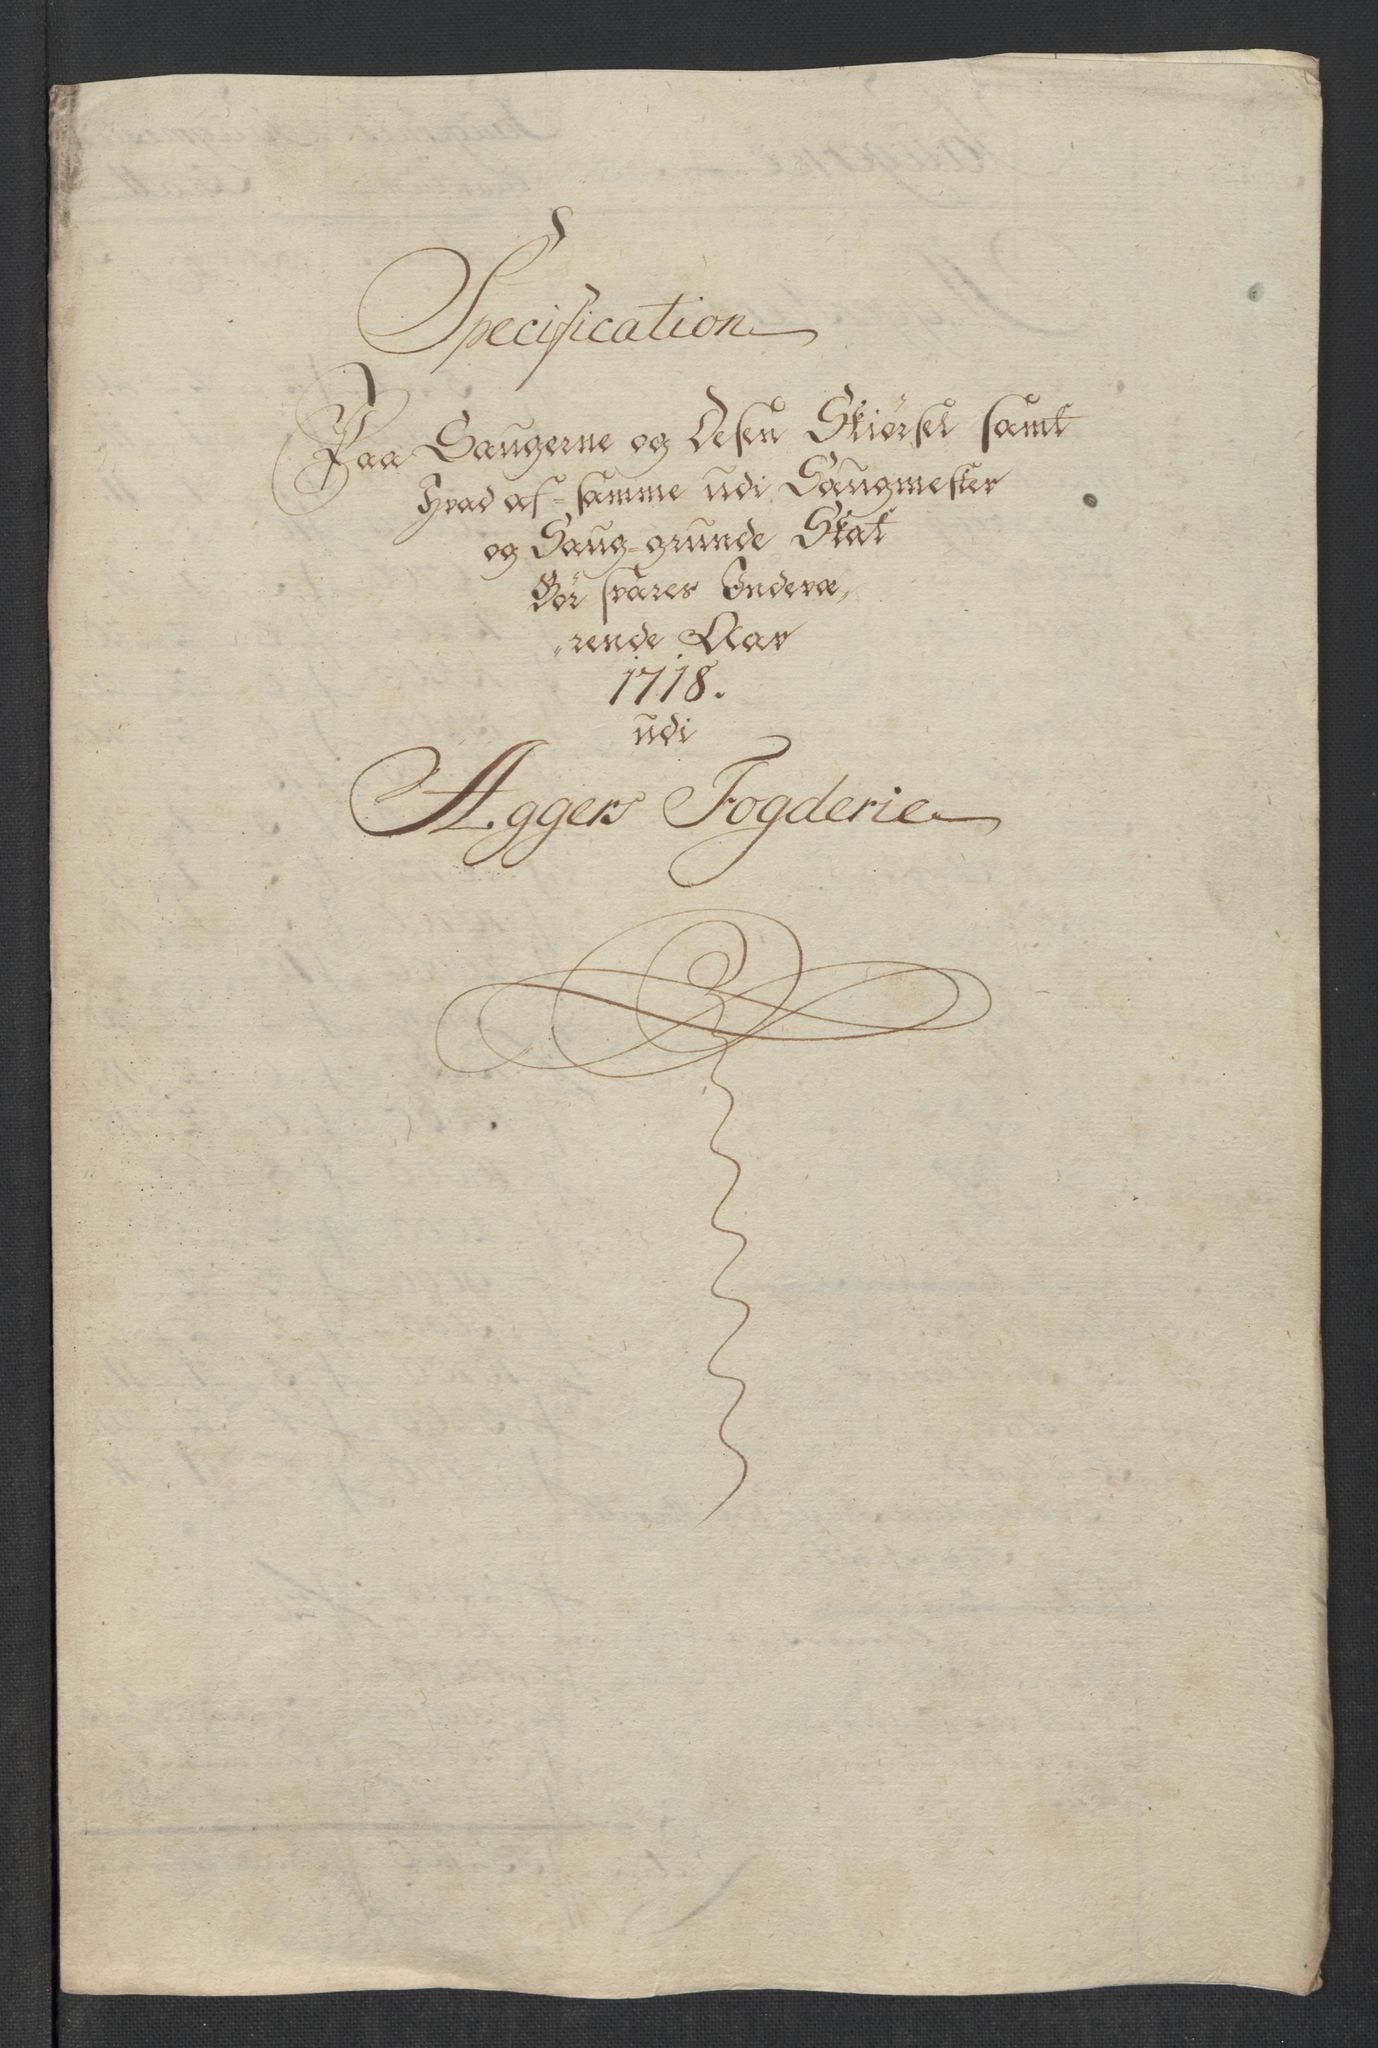 Specification
Paa Saugerne og Desen Skiørsel samt
Hvad af samme udi Saugmester
og Saug-grunde Skat
Bør svares Indevæ„
„rende Aar
1718.
udi
Aggers Fogderie